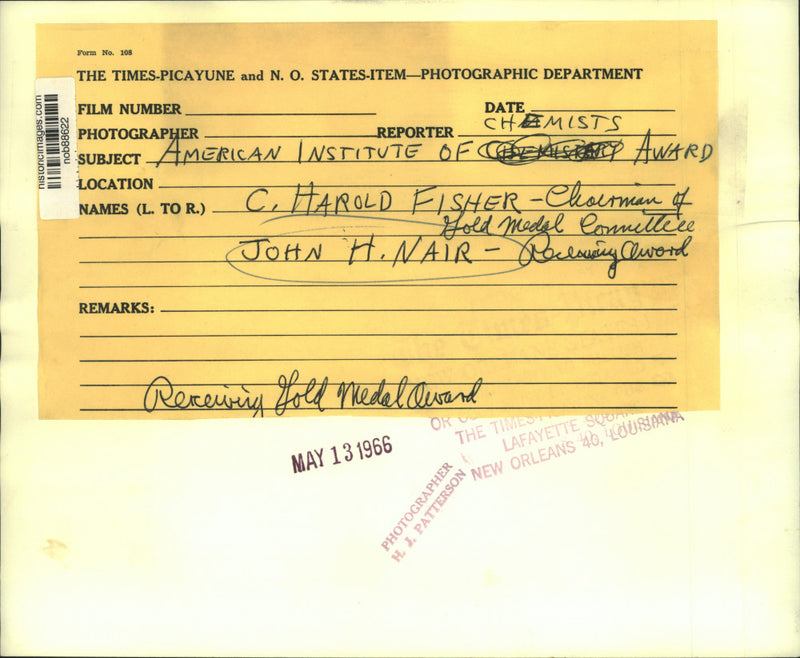 Form No. 108
THE TIMES-PICAYUNE and N. O. STATES-ITEM—PHOTOGRAPHIC DEPARTMENT
FILM NUMBER
DATE
PHOTOGRAPHER
REPORTER
CHEMISTS
SUBJECT AMERICAN INSTITUTE OF CHEMISTRY AWARD
LOCATION
NAMES (L. TO R.) C. HAROLD FISHER - Chairman of
Gold Medal Committee
JOHN H. NAIR - Receiving Award
REMARKS:
Receiving Gold Medal Award
historicimages.com
nob88622
MAY 13 1966
OR
THE TIMES-PI
LAFAYETTE SQUAR
NEW ORLEANS 40, LOUISIANA
PHOTOGRAPHER
H. J. PATTERSON